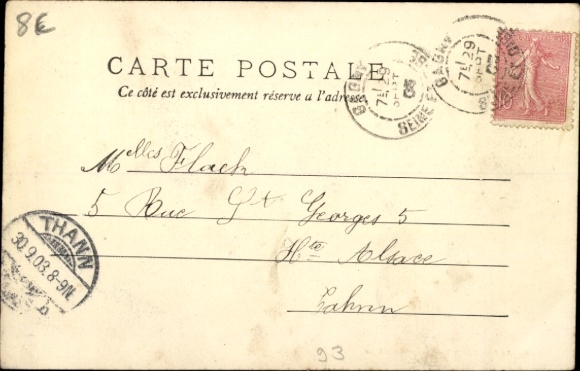 8€
CARTE POSTALE
Ce côté est exclusivement réservé a l'adresse
GAGNY
7E 29
SEPT
03
SEINE-ET-
GAGNY
7E 29
SEPT
03
Melles Flach
5 Rue St Georges 5
Hte Alsace
THANN
30.9.03.8-9N.
93